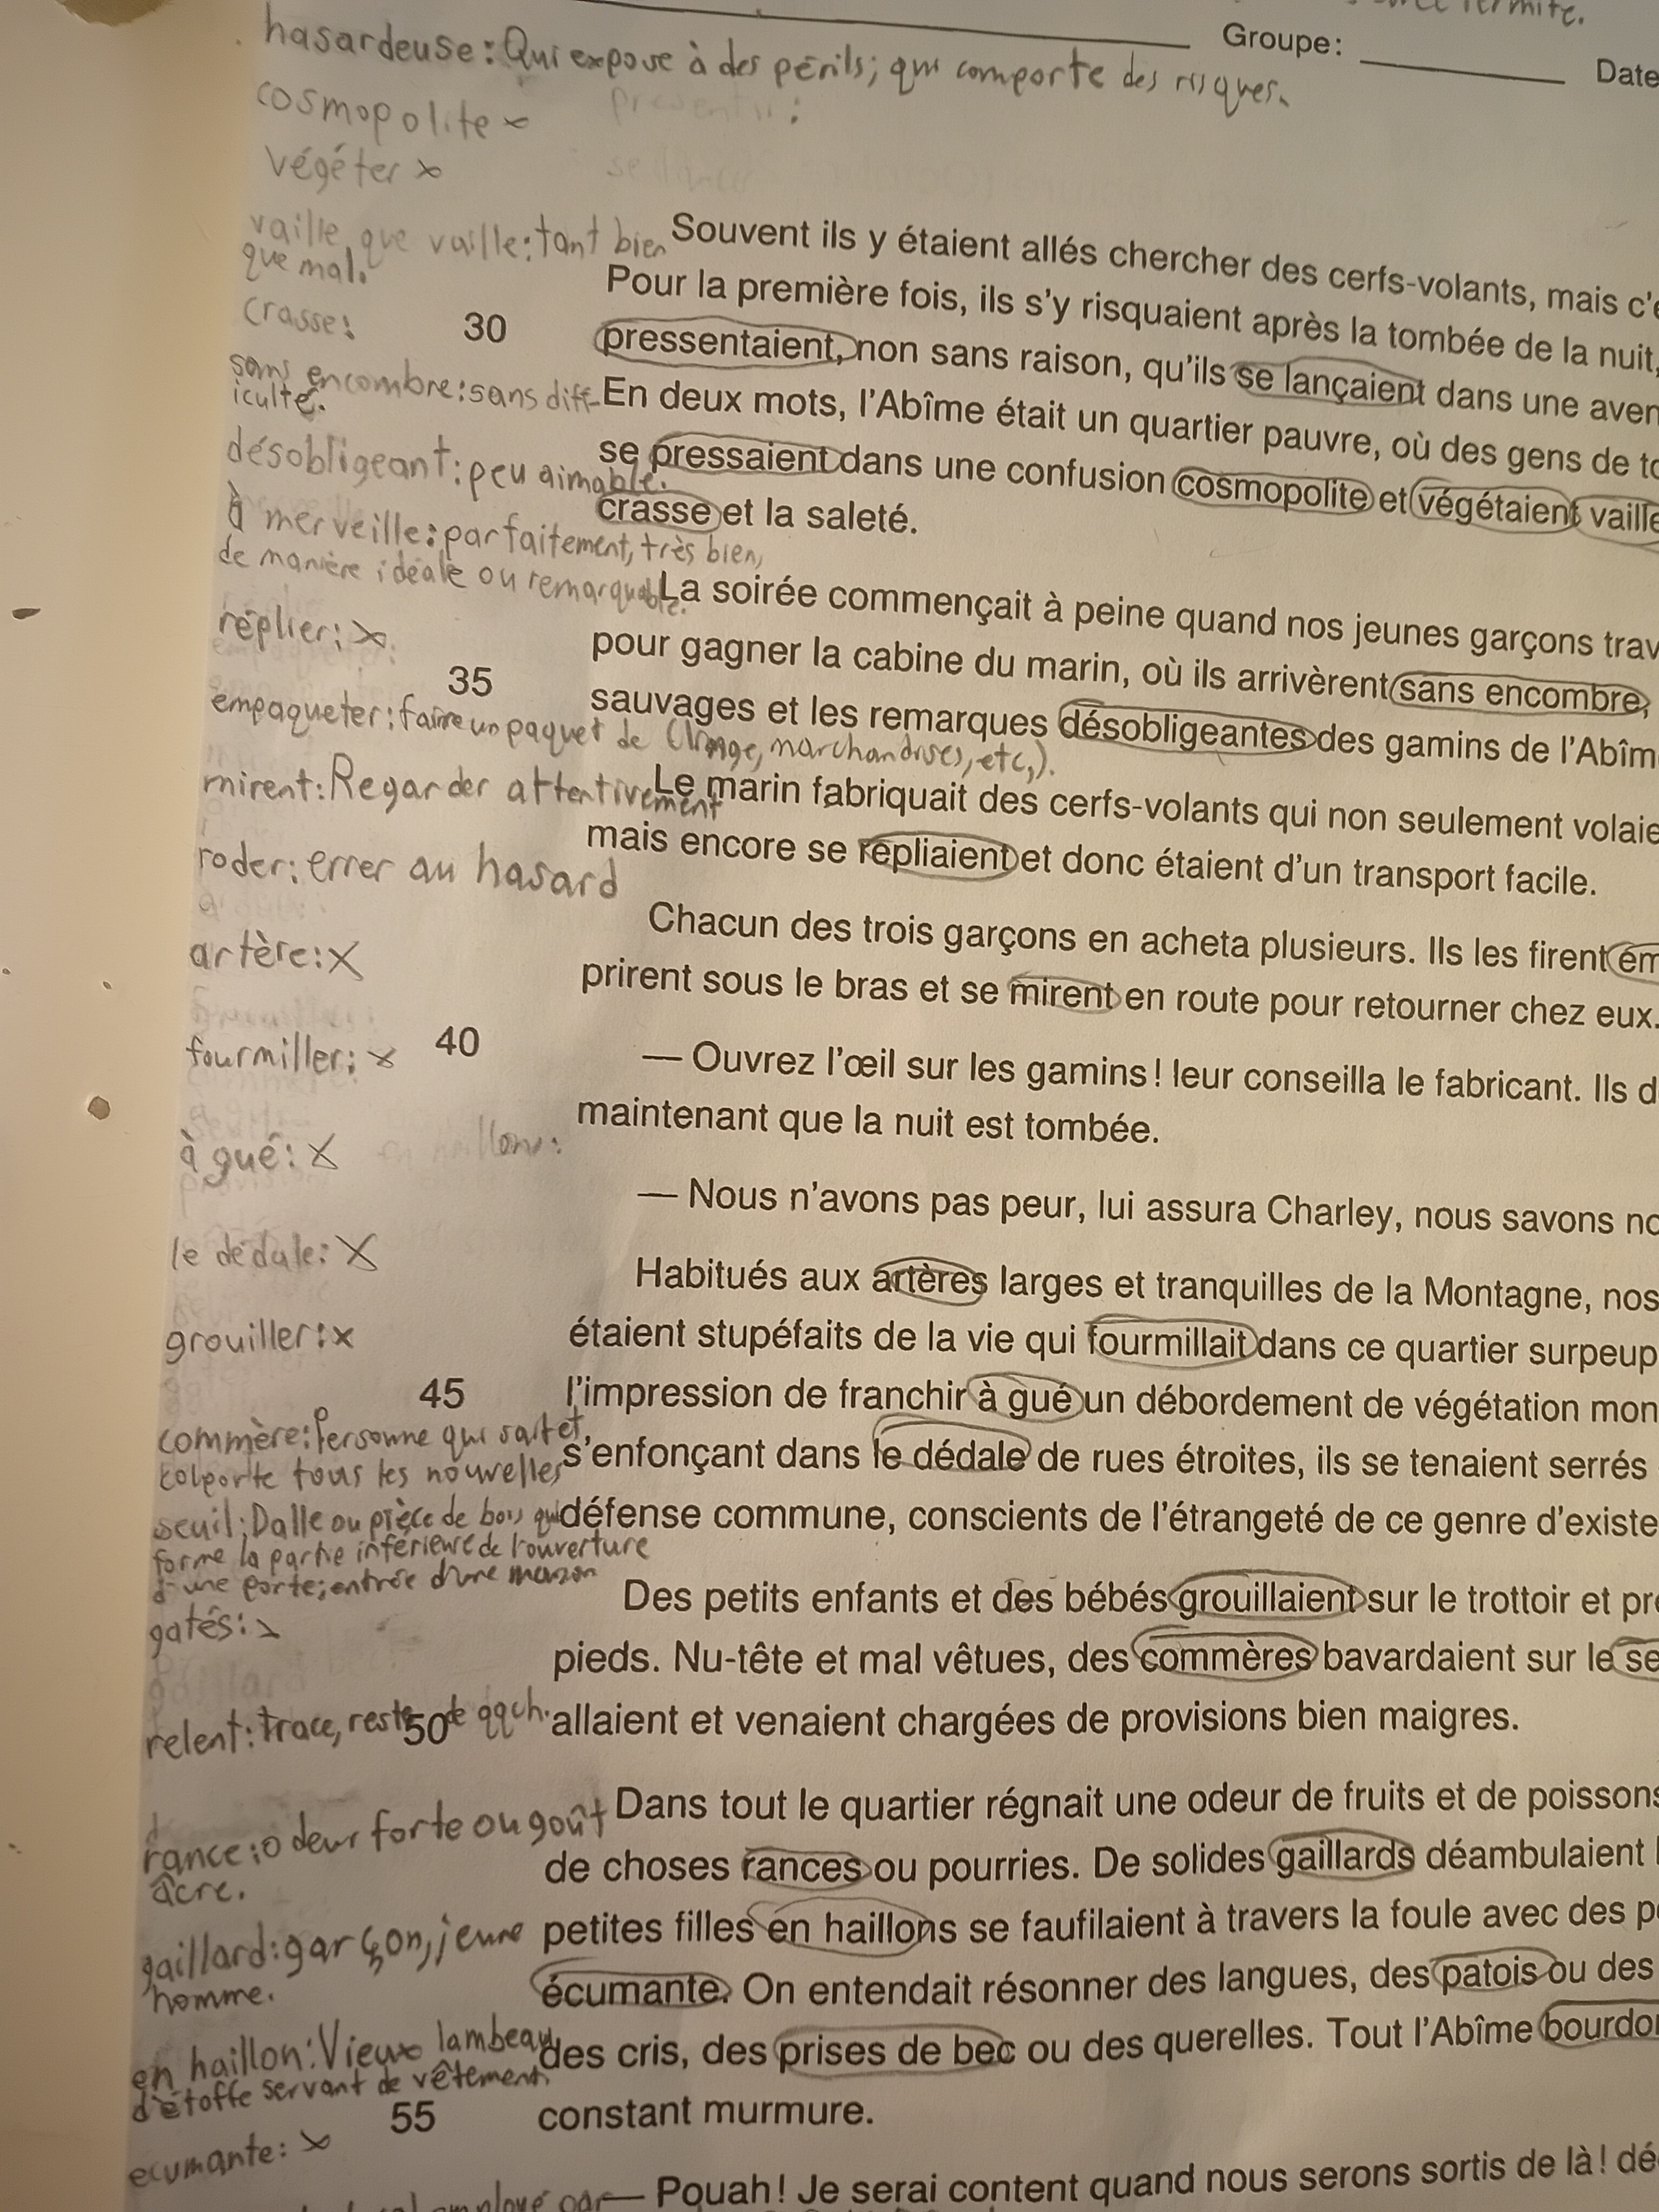 ermite.
Groupe: Date
hasardeuse: Qui expose à des périls; qui comporte des risques.
cosmopolite x
végéter x
vaille que vaille: tant bien
que mal.
crasse:
sans encombre: sans diff-
iculté.
désobligeant: peu aimable.
à merveille: parfaitement, très bien,
de manière idéale ou remarquable.
réplier: x
empaqueter: faire un paquet de (linge, marchandises, etc,).
mirent: Regarder attentivement
roder: errer au hasard
artère: X
fourmiller: x
à gué: X
le dédale: X
grouiller: x
commère: Personne qui sait et
colporte tous les nouvelles
seuil: Dalle ou pièce de bois qui
forme la partie inférieure de l'ouverture
d'une porte; entrée d'une maison
gatés: x
relent: trace, reste de qqch.
rance: odeur forte ou goût
âcre.
gaillard: garçon, jeune
homme.
en haillon: Vieux lambeau
d'étoffe servant de vêtement.
ecumante: x
employé par
Souvent ils y étaient allés chercher des cerfs-volants, mais c'é
Pour la première fois, ils s'y risquaient après la tombée de la nuit,
30 pressentaient, non sans raison, qu'ils se lançaient dans une aven
En deux mots, l'Abîme était un quartier pauvre, où des gens de to
se pressaient dans une confusion cosmopolite et végétaient vaille
crasse et la saleté.
La soirée commençait à peine quand nos jeunes garçons trav
pour gagner la cabine du marin, où ils arrivèrent sans encombre,
35 sauvages et les remarques désobligeantes des gamins de l'Abîm
Le marin fabriquait des cerfs-volants qui non seulement volaie
mais encore se repliaient et donc étaient d'un transport facile.
Chacun des trois garçons en acheta plusieurs. Ils les firent em
prirent sous le bras et se mirent en route pour retourner chez eux.
40 — Ouvrez l'œil sur les gamins! leur conseilla le fabricant. Ils d
maintenant que la nuit est tombée.
— Nous n'avons pas peur, lui assura Charley, nous savons no
Habitués aux artères larges et tranquilles de la Montagne, nos
étaient stupéfaits de la vie qui fourmillait dans ce quartier surpeup
45 l'impression de franchir à gué un débordement de végétation mon
s'enfonçant dans le dédale de rues étroites, ils se tenaient serrés
défense commune, conscients de l'étrangeté de ce genre d'existe
Des petits enfants et des bébés grouillaient sur le trottoir et pre
pieds. Nu-tête et mal vêtues, des commères bavardaient sur le se
50 allaient et venaient chargées de provisions bien maigres.
Dans tout le quartier régnait une odeur de fruits et de poissons
de choses rances ou pourries. De solides gaillards déambulaient l
petites filles en haillons se faufilaient à travers la foule avec des p
écumante. On entendait résonner des langues, des patois ou des
des cris, des prises de bec ou des querelles. Tout l'Abîme bourdon
55 constant murmure.
— Pouah! Je serai content quand nous serons sortis de là! dé